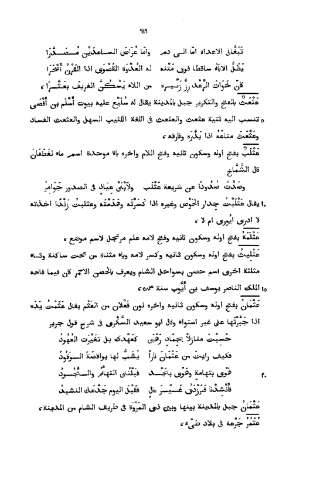 ٦٢
تبغل الاعداء امّا الى دمر وامّا عُراض الساعديْن مُصَدَّرا
يظلّ الاباء ساقطا فوق مَتْنه له العُذوة القُصْوى اذا القِرْن أَصْحَرا
كأنّ خَوات الرعد رزّ زئيره من اللاء يسكنّ الغريف بعثّرا،
عَثْعَثُ بالفتح والتكرير جبل بالمدينة يقال له سُلَيع عليه بيوت اسلم بن أَفْصَى
٥ تنسب اليه ثنية عثعث والعثعث فى اللغة الكثيب السهل والعثعث الفساد
وعَثْعَثَ متاعه اذا بذّره وفرّقه،
عَثْلَبُ بفتح اوله وسكون ثانيه وفتح اللام واخره باء موحدة اسم ماء لغَطَفان
قال الشَّمّاخ
وصدّت صدودا عن شريعة عثلب ولابْنَى عِياذ فى الصدور جوامز
١٠ يقال عَثْلَبْتُ جدار الحوض وغيره اذا كسرته وهدمته وعثلبتُ زَنْدًا اخذته
لا ادرى أيُورى ام لا،
عَثْلَمَةُ بفتح اوله وسكون ثانيه وفتح لامه علم مرتجل لاسم موضع،
عَثْلِيثُ بفتح اوله وسكون ثانيه وكسر لامه وياء مثناة من تحت ساكنة وثاء
مثلثة اخرى اسم حصن بسواحل الشام ويعرف بالحصن الاحمر كان فيما فتحه
١٥ الملك الناصر يوسف بن أيّوب سنة ٥٨٣،
عَثْمانُ بفتح اوله وسكون ثانيه واخره نون فَعْلان من العثم يقال عثمتُ يده
اذا جبرتها على غير استواء وقال ابو سعيد السكّرى فى شرح قول جرير
حسبتَ منازلا بجماد رَهْبَى كعهدك بل تغيّرت العهود
فكيف رايت من عثمان نارا يشبّ لها بواقصة الوقود
٢٠ هوى بتهامة وهوى بنجد فبلّتنى التهائم والنجود
فأنشِدْ يا فرزدق غير عال فقبل اليوم جدّعك النشيد
عثمان جبل بالمدينة بينها وبين ذى المروة فى طريف الشام من المدينة،
عَثْمَرُ جرعة فى بلاد طىّء،